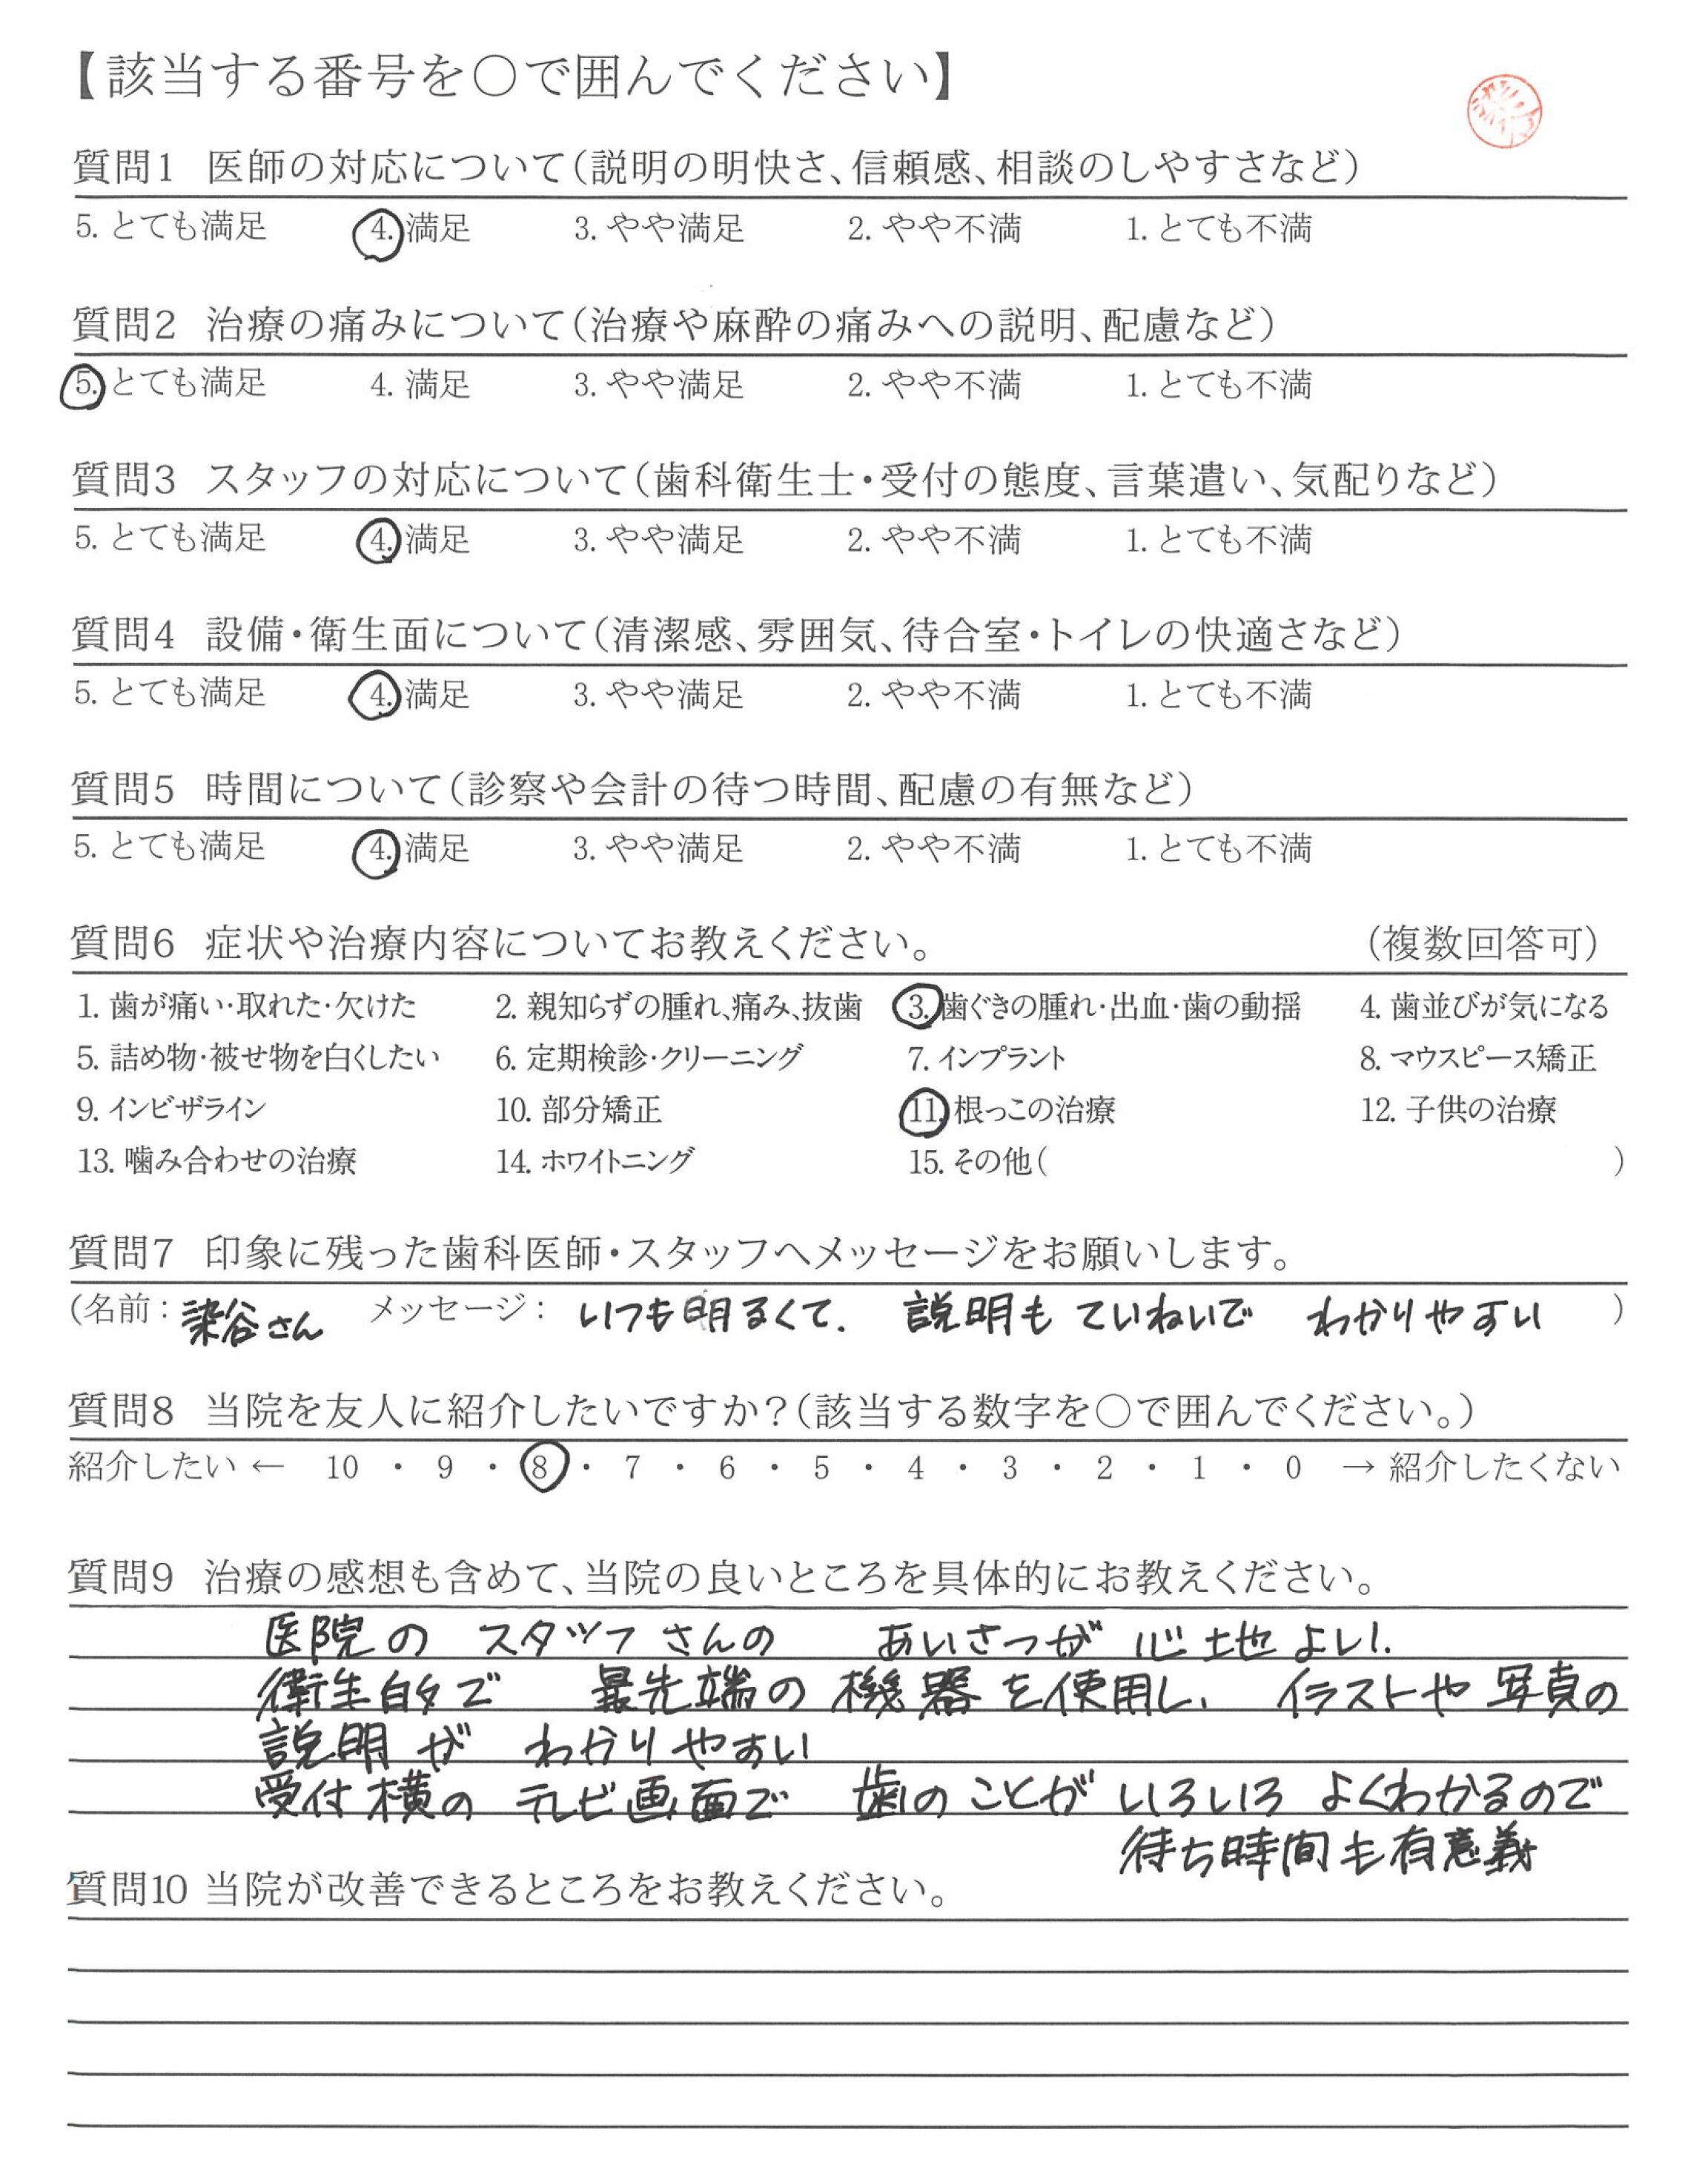 【該当する番号を○で囲んでください】
質問1 医師の対応について(説明の明快さ、信頼感、相談のしやすさなど)
5. とても満足 4. 満足 3. やや満足 2. やや不満 1. とても不満
質問2 治療の痛みについて(治療や麻酔の痛みへの説明、配慮など)
5. とても満足 4. 満足 3. やや満足 2. やや不満 1. とても不満
質問3 スタッフの対応について(歯科衛生士・受付の態度、言葉遣い、気配りなど)
5. とても満足 4. 満足 3. やや満足 2. やや不満 1. とても不満
質問4 設備・衛生面について(清潔感、雰囲気、待合室・トイレの快適さなど)
5. とても満足 4. 満足 3. やや満足 2. やや不満 1. とても不満
質問5 時間について(診察や会計の待つ時間、配慮の有無など)
5. とても満足 4. 満足 3. やや満足 2. やや不満 1. とても不満
質問6 症状や治療内容についてお教えください。 (複数回答可)
1. 歯が痛い・取れた・欠けた 2. 親知らずの腫れ、痛み、抜歯 3. 歯ぐきの腫れ・出血・歯の動揺 4. 歯並びが気になる
5. 詰め物・被せ物を白くしたい 6. 定期検診・クリーニング 7. インプラント 8. マウスピース矯正
9. インビザライン 10. 部分矯正 11. 根っこの治療 12. 子供の治療
13. 噛み合わせの治療 14. ホワイトニング 15. その他( )
質問7 印象に残った歯科医師・スタッフへメッセージをお願いします。
(名前：染谷さん メッセージ：いつも明るくて、説明もていねいで わかりやすい )
質問8 当院を友人に紹介したいですか？(該当する数字を○で囲んでください。)
紹介したい ← 10 ・ 9 ・ 8 ・ 7 ・ 6 ・ 5 ・ 4 ・ 3 ・ 2 ・ 1 ・ 0 → 紹介したくない
質問9 治療の感想も含めて、当院の良いところを具体的にお教えください。
医院の スタッフさんの あいさつが 心地よい!
衛生的で 最先端の機器を使用し、イラストや写真の
説明が わかりやすい
受付横の テレビ画面で 歯のことが いろいろ よくわかるので
待ち時間も有意義
質問10 当院が改善できるところをお教えください。